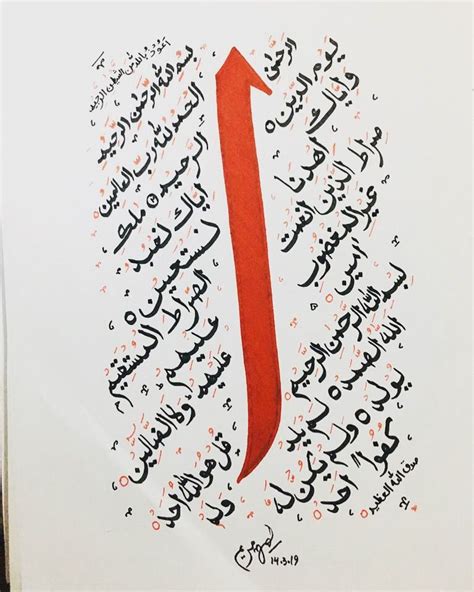 اعوذ بالله من الشيطن الرجيم
بسم الله الرحمن الرحيم
الحمد لله رب العالمين
الرحمن
الرحيم ملك
يوم الدين
اياك نعبد
واياك
نستعين
اهدنا
الصراط المستقيم
صراط الذين انعمت
عليهم
غير المغضوب
عليهم ولا الضالين
امين
بسم الله الرحمن الرحيم
قل هو الله احد
الله الصمد لم يلد
ولم
يولد ولم يكن له
كفوا احد
صدق الله العظيم
14.3.19